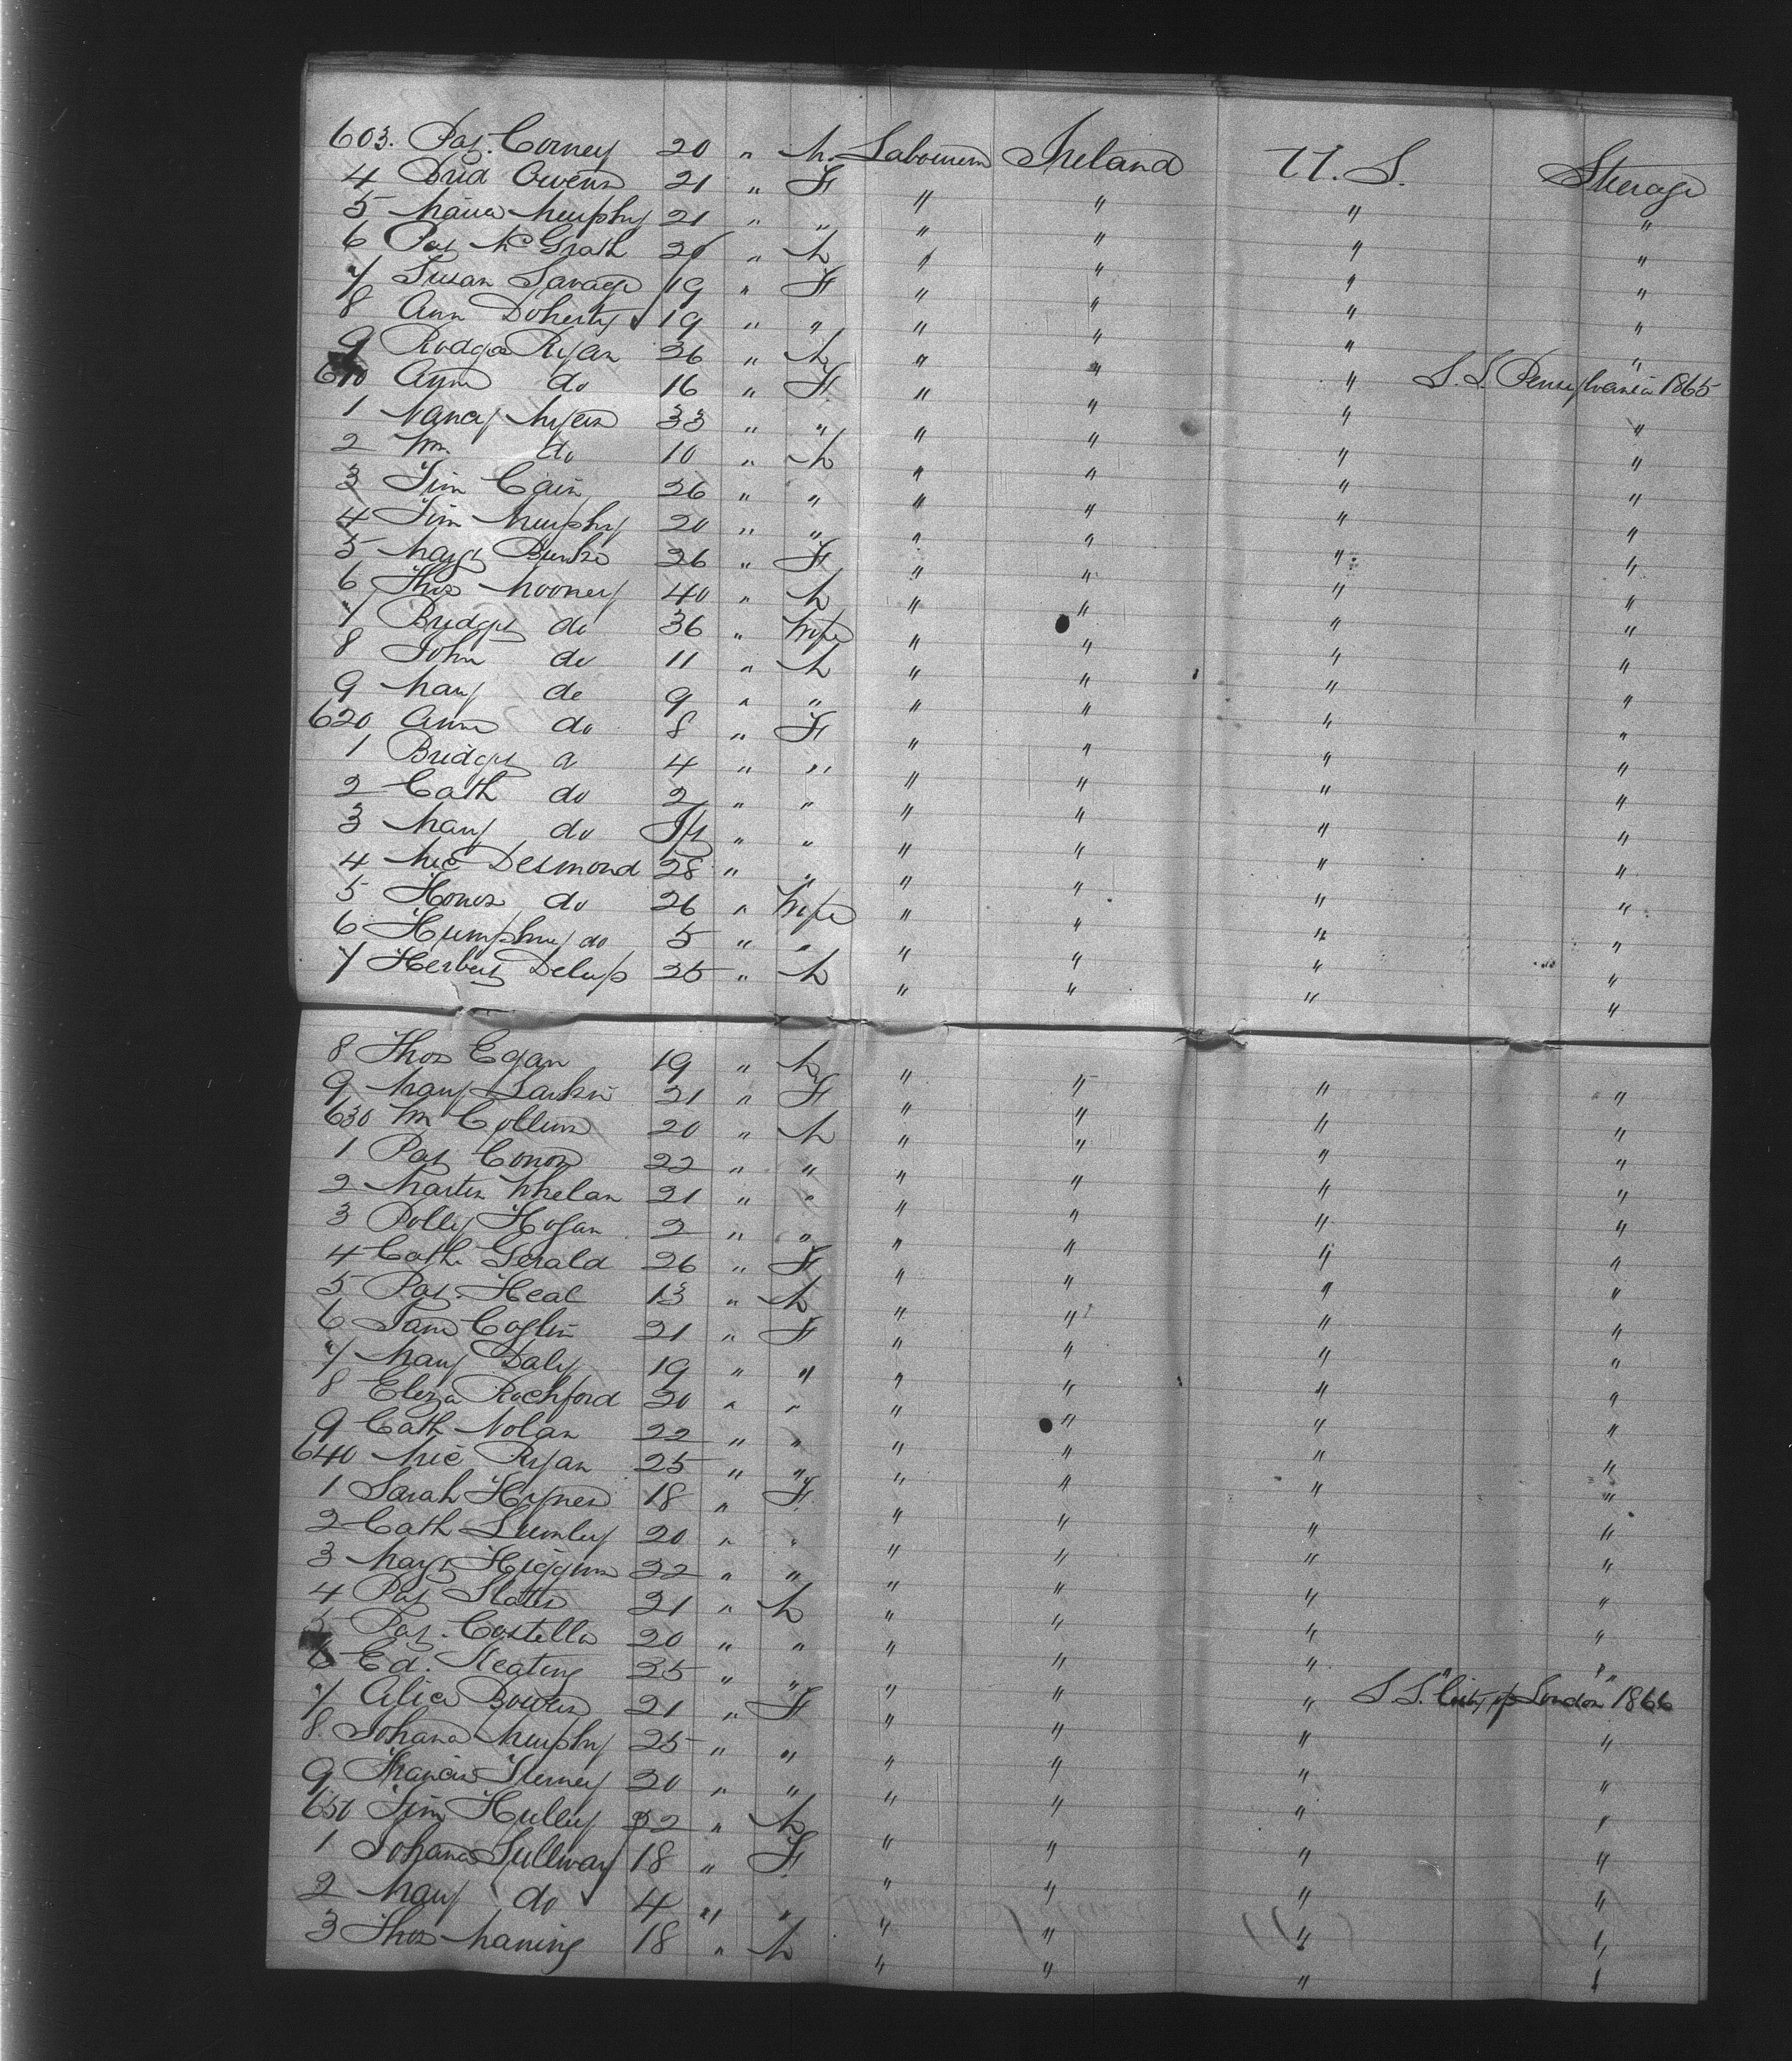 603. Pat. Corney 20 " M. Labourers Ireland U.S. Sterage
4 Brid Owens 21 " F " " " "
5 Maria Murphy 21 " " " " " "
6 Pat McGrath 20 " M " " " "
7 Susan Savage 19 " F " " " "
8 Ann Doherty 19 " " " " " "
9 Rodger Ryan 26 " M " " " "
610 Ann do 16 " F " " " S.S. Pensylvania 1865
1 Nancy Myers 33 " " " " " "
2 Wm do 10 " M " " " "
3 Tim Cain 26 " " " " " "
4 Tim Murphy 20 " " " " " "
5 Margt Burke 26 " F " " " "
6 Thos Mooney 40 " M " " " "
7 Bridget do 36 " Wife " " " "
8 John do 11 " M " " " "
9 Mary do 9 " " " " " "
620 Ann do 8 " F " " " "
1 Bridget a 4 " " " " " "
2 Cath do 2 " " " " " "
3 Mary do Inf " " " " " "
4 Mic Desmond 28 " " " " " "
5 Honor do 26 " Wife " " " "
6 Humphry do 5 " " " " " "
7 Herbert Delup 25 " M " " " "
8 Thos Egan 19 " M " " " "
9 Mary Larkin 21 " F " " " "
630 Wm Collins 20 " M " " " "
1 Pat Conor 22 " " " " " "
2 Martin Whelan 21 " " " " " "
3 Polly Hogan 2 " " " " " "
4 Cath. Gerald 26 " F " " " "
5 Pat. Heal 13 " M " " " "
6 Jane Coglin 21 " F " " " "
7 Mary Daly 19 " " " " " "
8 Eliza Rochford 20 " " " " " "
9 Cath Nolan 22 " " " " " "
640 Mic Ryan 25 " " " " " "
1 Sarah Hynes 18 " F " " " "
2 Cath Lumley 20 " " " " " "
3 Margt Higgins 22 " " " " " "
4 Pat Slater 21 " M " " " "
5 Pat. Costello 20 " " " " " "
6 Ed. Keating 25 " " " " " "
7 Alice Bowers 21 " F " " " S.S. "City of London" 1866
8 Johana Murphy 25 " " " " " "
9 Francis Tierney 20 " " " " " "
650 Tim Hulley 22 " M " " " "
1 Johana Sullivay 18 " F " " " "
2 Mary do 4 " " " " " "
3 Thos Maning 18 " M " " " "